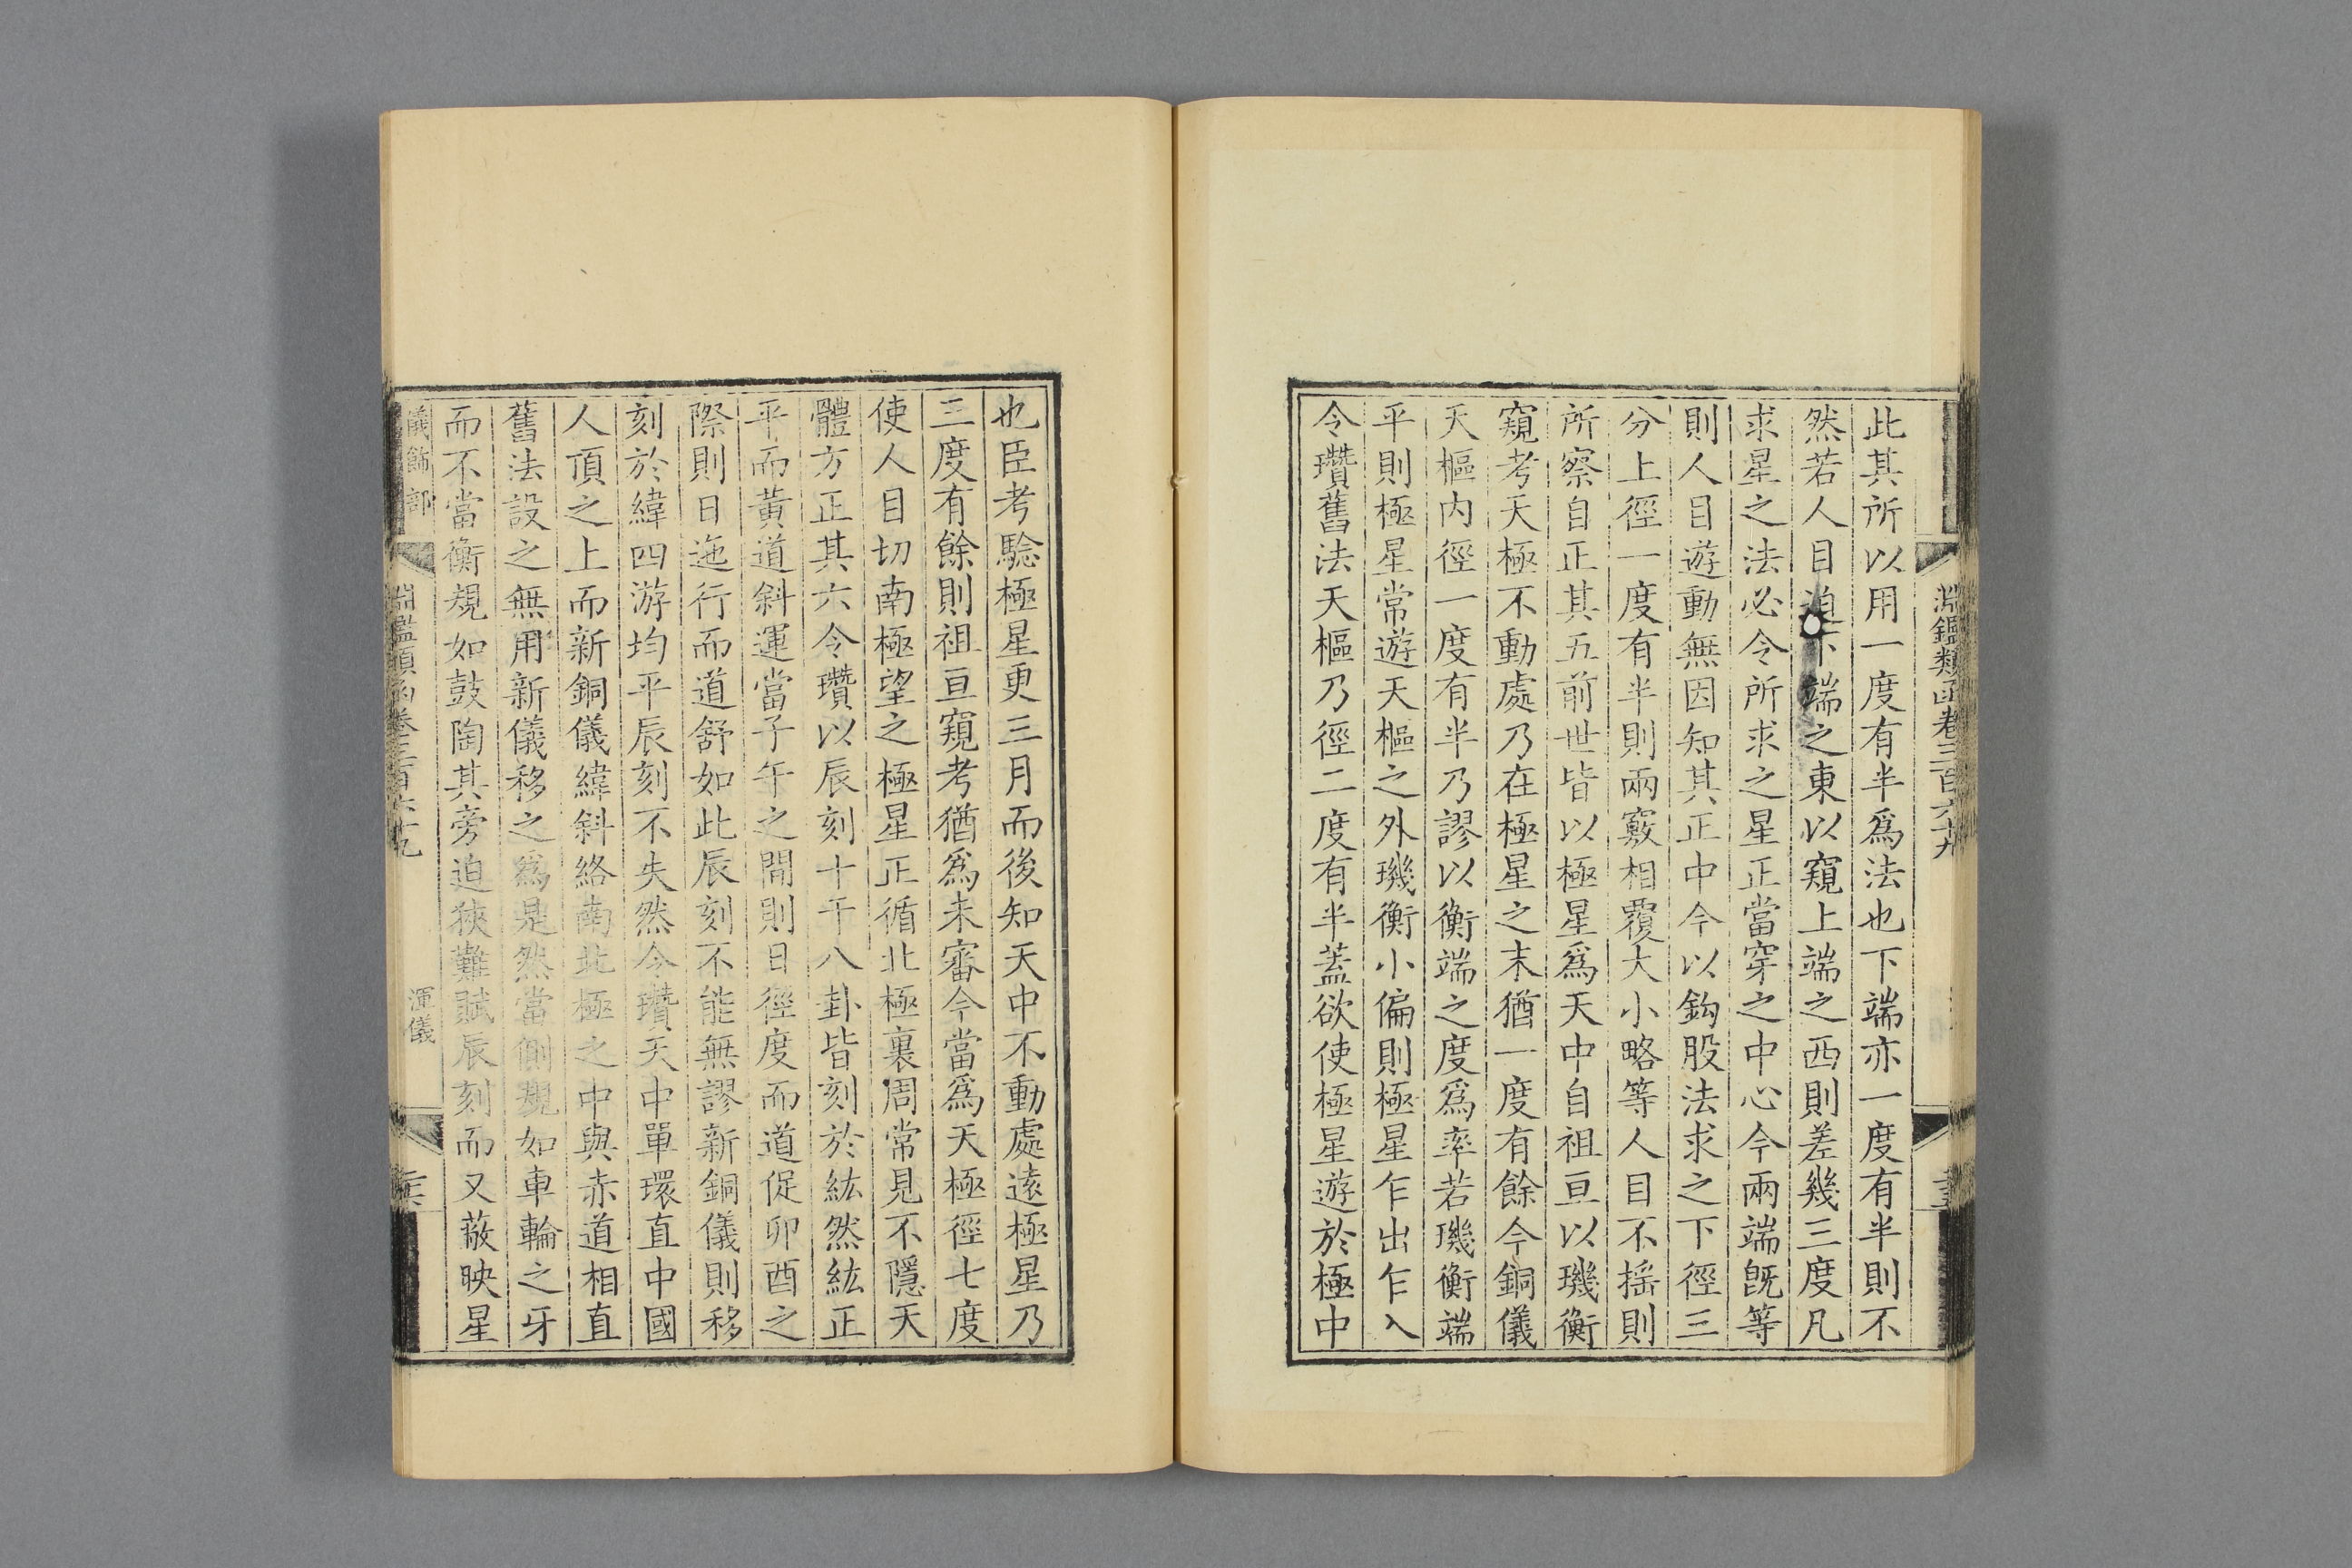 淵鑑類函卷三百六十九
此其所以用一度有半爲法也下端亦一度有半則不
然若人目迫下端之東以窺上端之西則差幾三度凡
求星之法必令所求之星正當穿之中心今兩端旣等
則人目遊動無因知其正中今以鈎股法求之下徑三
分上徑一度有半則兩竅相覆大小略等人目不揺則
所察自正其五前世皆以極星爲天中自祖亘以璣衡
窺考天極不動處乃在極星之末猶一度有餘今銅儀
天樞内徑一度有半乃謬以衡端之度爲率若璣衡端
平則極星常遊天樞之外璣衡小偏則極星乍出乍入
令瓚舊法天樞乃徑二度有半蓋欲使極星遊於極中
也臣考驗極星更三月而後知天中不動處遠極星乃
三度有餘則祖亘窺考猶爲未審今當爲天極徑七度
使人目切南極望之極星正循北極裏周常見不隱天
體方正其六令瓚以辰刻十干八卦皆刻於紘然紘正
平而黃道斜運當子午之間則日徑度而道促卯酉之
際則日迤行而道舒如此辰刻不能無謬新銅儀則移
刻於緯四游均平辰刻不失然令瓚天中單環直中國
人頂之上而新銅儀緯斜絡南北極之中與赤道相直
舊法設之無用新儀移之爲是然當側規如車輪之牙
而不當衡規如鼓陶其旁迫狹難賦辰刻而又蔽映星
儀飾部
淵鑑類函卷三百六十九
渾儀